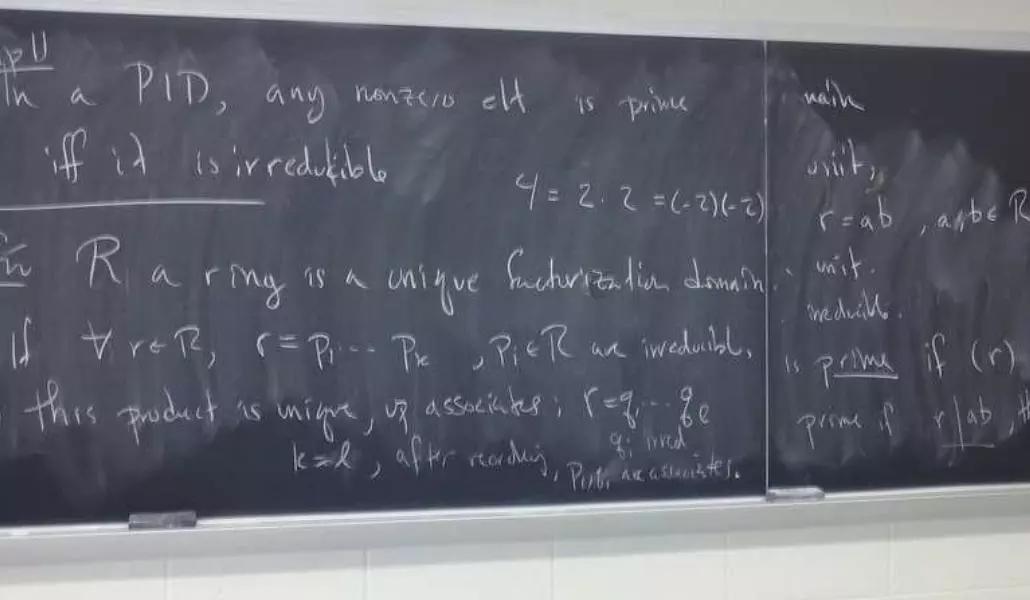 In a PID, any nonzero elt is prime
iff it is irreducible
4 = 2 · 2 = (-2)(-2)
R a ring is a unique factorization domain
If ∀ r ∈ R, r = p₁ ... pₖ , pᵢ ∈ R are irreducible,
this product is unique, associates; r = q₁ ... qₗ
qᵢ irred
k = l, after reording, pᵢ, qᵢ are associates.
main
unit,
r = ab , a, b ∈ R
unit.
is prime if (r)
prime if r | ab,